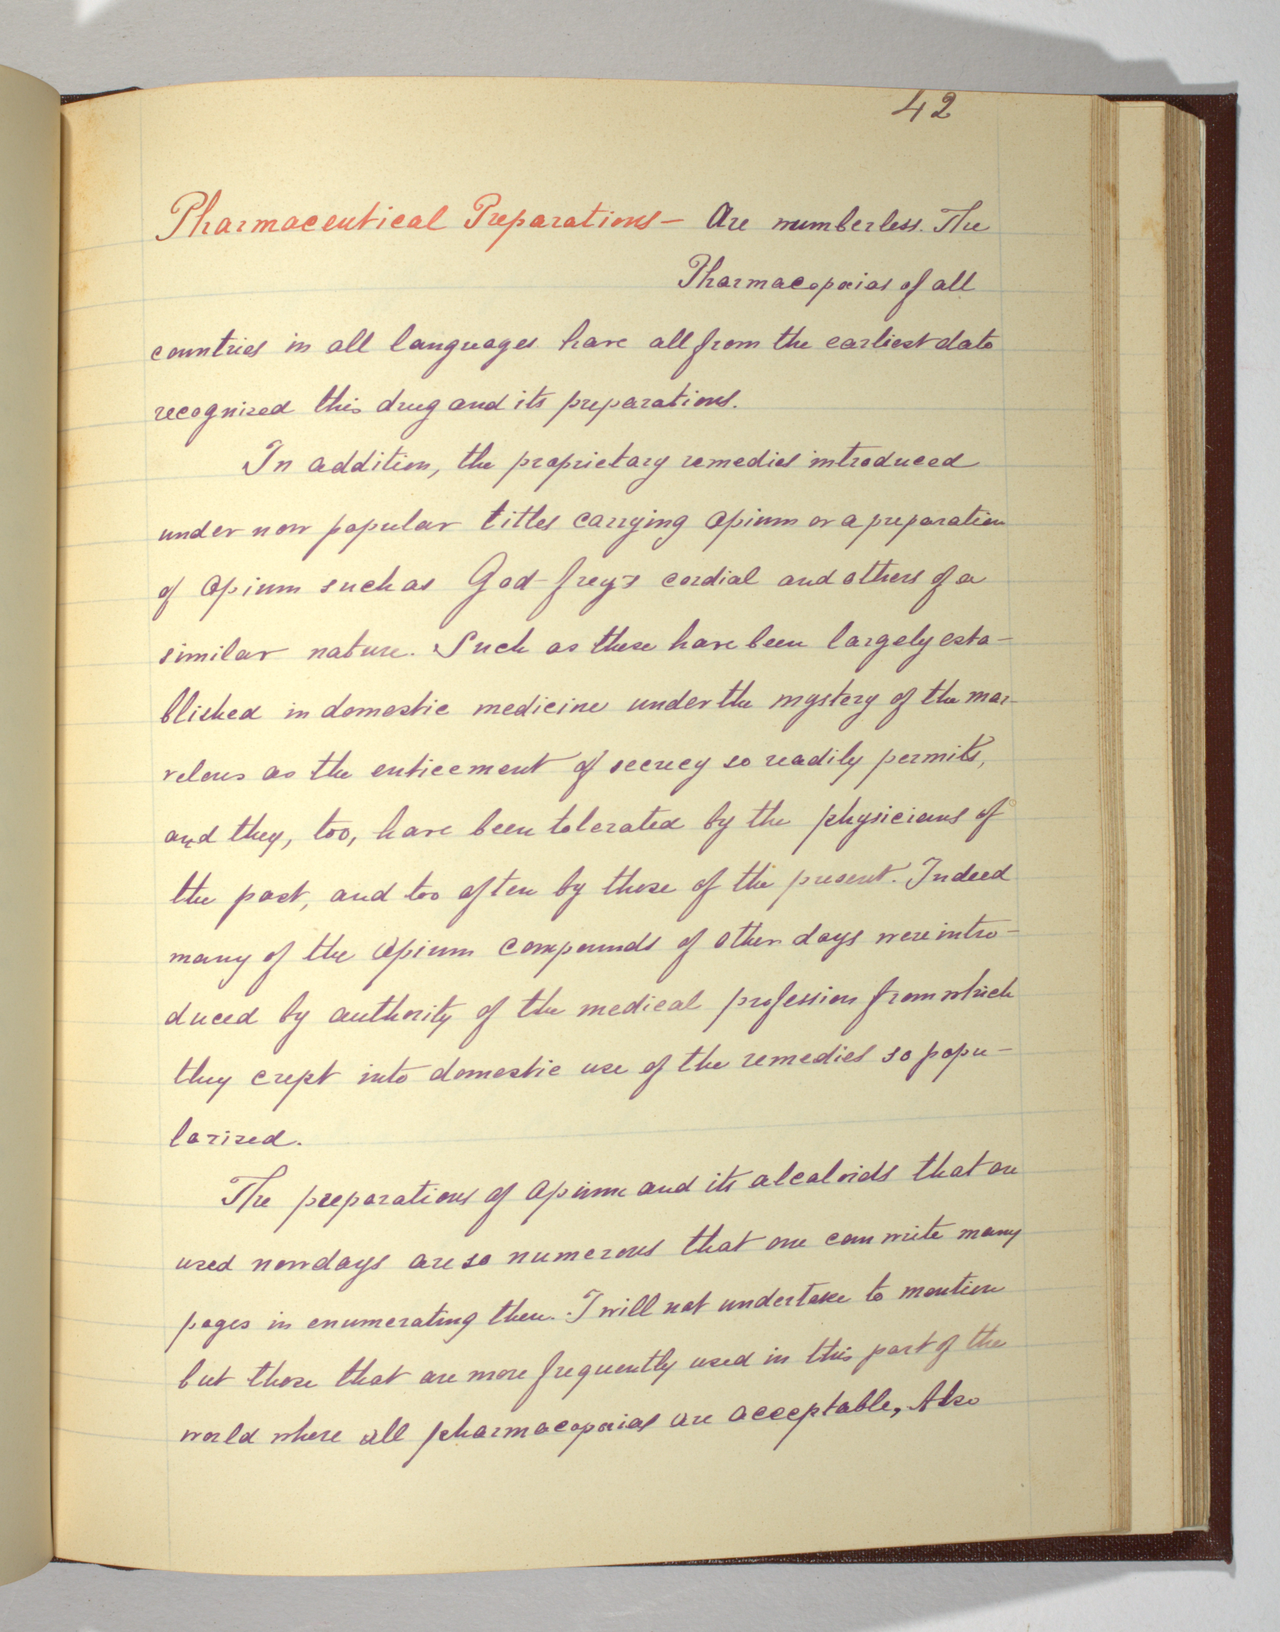 42
Pharmaceutical Preparations — Are numberless. The
Pharmacopoeias of all
countries in all languages have all from the earliest date
recognized this drug and its preparations.
In addition, the proprietary remedies introduced
under now popular titles carrying Opium or a preparation
of Opium such as God-frey's cordial and others of a
similar nature. Such as these have been largely esta-
blished in domestic medicine under the mystery of the mar-
velous as the enticement of secrecy so readily permits,
and they, too, have been tolerated by the physicians of
the past, and too often by those of the present. Indeed
many of the Opium compounds of other days were intro-
duced by authority of the medical profession from which
they crept into domestic use of the remedies so popu-
larized.
The preparations of Opium and its alcaloids that are
used nowdays are so numerous that one can write many
pages in enumerating them. I will not undertake to mention
but those that are more frequently used in this part of the
world where all pharmacopoeias are acceptable, Also